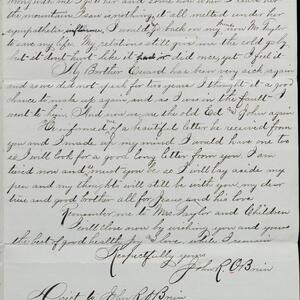 along with me I
her and some how when I leave her
the mountain I saw is nothing it all melted under her
sympathetic influence, I would go back on my Mr Taylor
to save my life. My relations still give me the cold
but it dont hurt like it did once, yet I feel it
My Brother has been very sick again
and some did not for ten years I think it a good
chance to make up again and as I was in the fault I
went to him, And now we are the old Ed & John again
I informed of a beautiful letter he received from
you and I made up my mind I would have one too
so I will look for a good long letter from you. I am
tired now and must you be so I will lay aside my
pen and my thoughts will still be with you my dear
true and good brother all for Jesus and his love
Remember me to Mrs Taylor and Children
I will close now by wishing you and yours
the best of good health, Joy and love, while I remain
Respectfully yours
John R. O'Brien
Direct to John R O'Brien